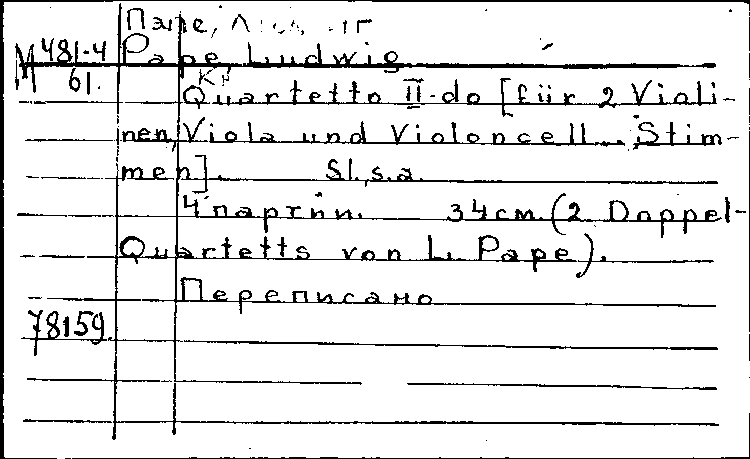 Папе,
M 481-4 Pape, Ludwig
61.
Quartetto II-do [für 2 Violi-
nen, Viola und Violoncell... Stim-
men]. Sl., s.a.
4 партии. 34см. (2 Doppel-
Quartetts von L. Pape).
Переписано
78159.